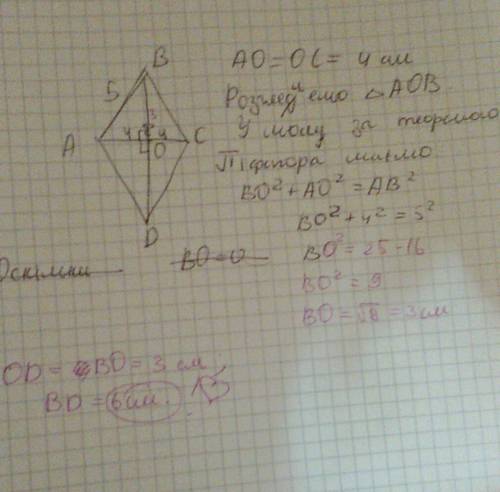 B
5
3
A 4 4 C
O
D
AO=OC= 4 см
Розглянемо △AOB.
У ньому за теоремою
Піфагора маємо
BO²+AO²=AB²
BO²+4²=5²
BO²=25-16
BO²=9
BO=√9=3см
Оскільки BO=O
OD=BO=3 см
BD=6см.